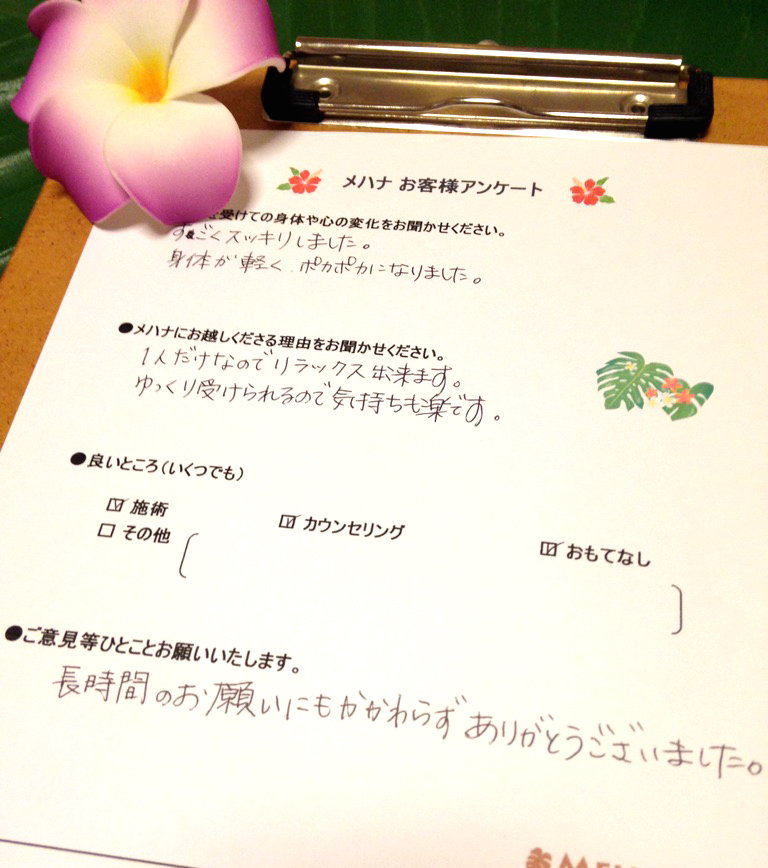 メハナ お客様アンケート
を受けての身体や心の変化をお聞かせください。
すごくスッキリしました。
身体が軽く、ポカポカになりました。
●メハナにお越しくださる理由をお聞かせください。
1人だけなのでリラックス出来ます。
ゆっくり受けられるので気持ちも楽です。
●良いところ(いくつでも)
☑ 施術 ☑ カウンセリング ☑ おもてなし
☐ その他 ( )
●ご意見等ひとことお願いいたします。
長時間のお願いにもかかわらずありがとうございました。